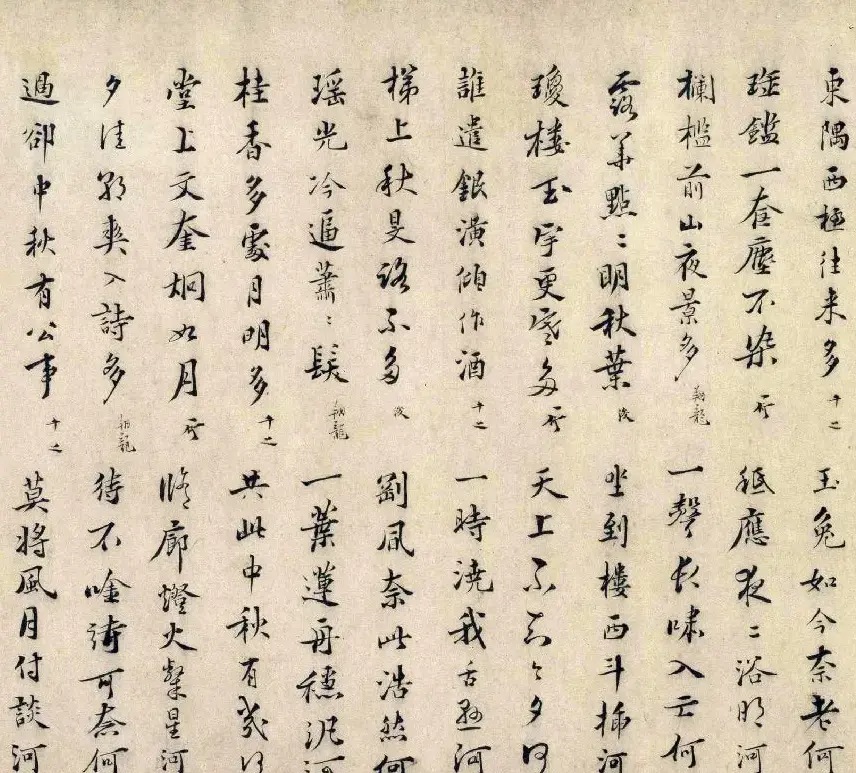 東隅西極往来多 十之 玉兔如今奈老何
瑶鑑一奁塵不染 秪應夜〻浴明河
欄檻前山夜景多 翱龍 一聲長嘯入云何
露華點〻明秋葉 浚 坐到樓西斗插河
瓊楼玉宇更寒多 天上不知今夕何
誰遣銀潢傾作酒 十之 一時澆我舌懸河
梯上秋旻路不多 浚 奈此浩然何
瑶光冷逼蕭〻髮 翱龍 一葉蓮舟穩泛河
桂香多處月明多 十之 共此中秋有幾何
堂上文奎炯如月 脩廊燈火粲星河
夕佳朝爽入詩多 翱龍 待不唫詩可奈何
過卻中秋有公事 十之 莫將風月付談河